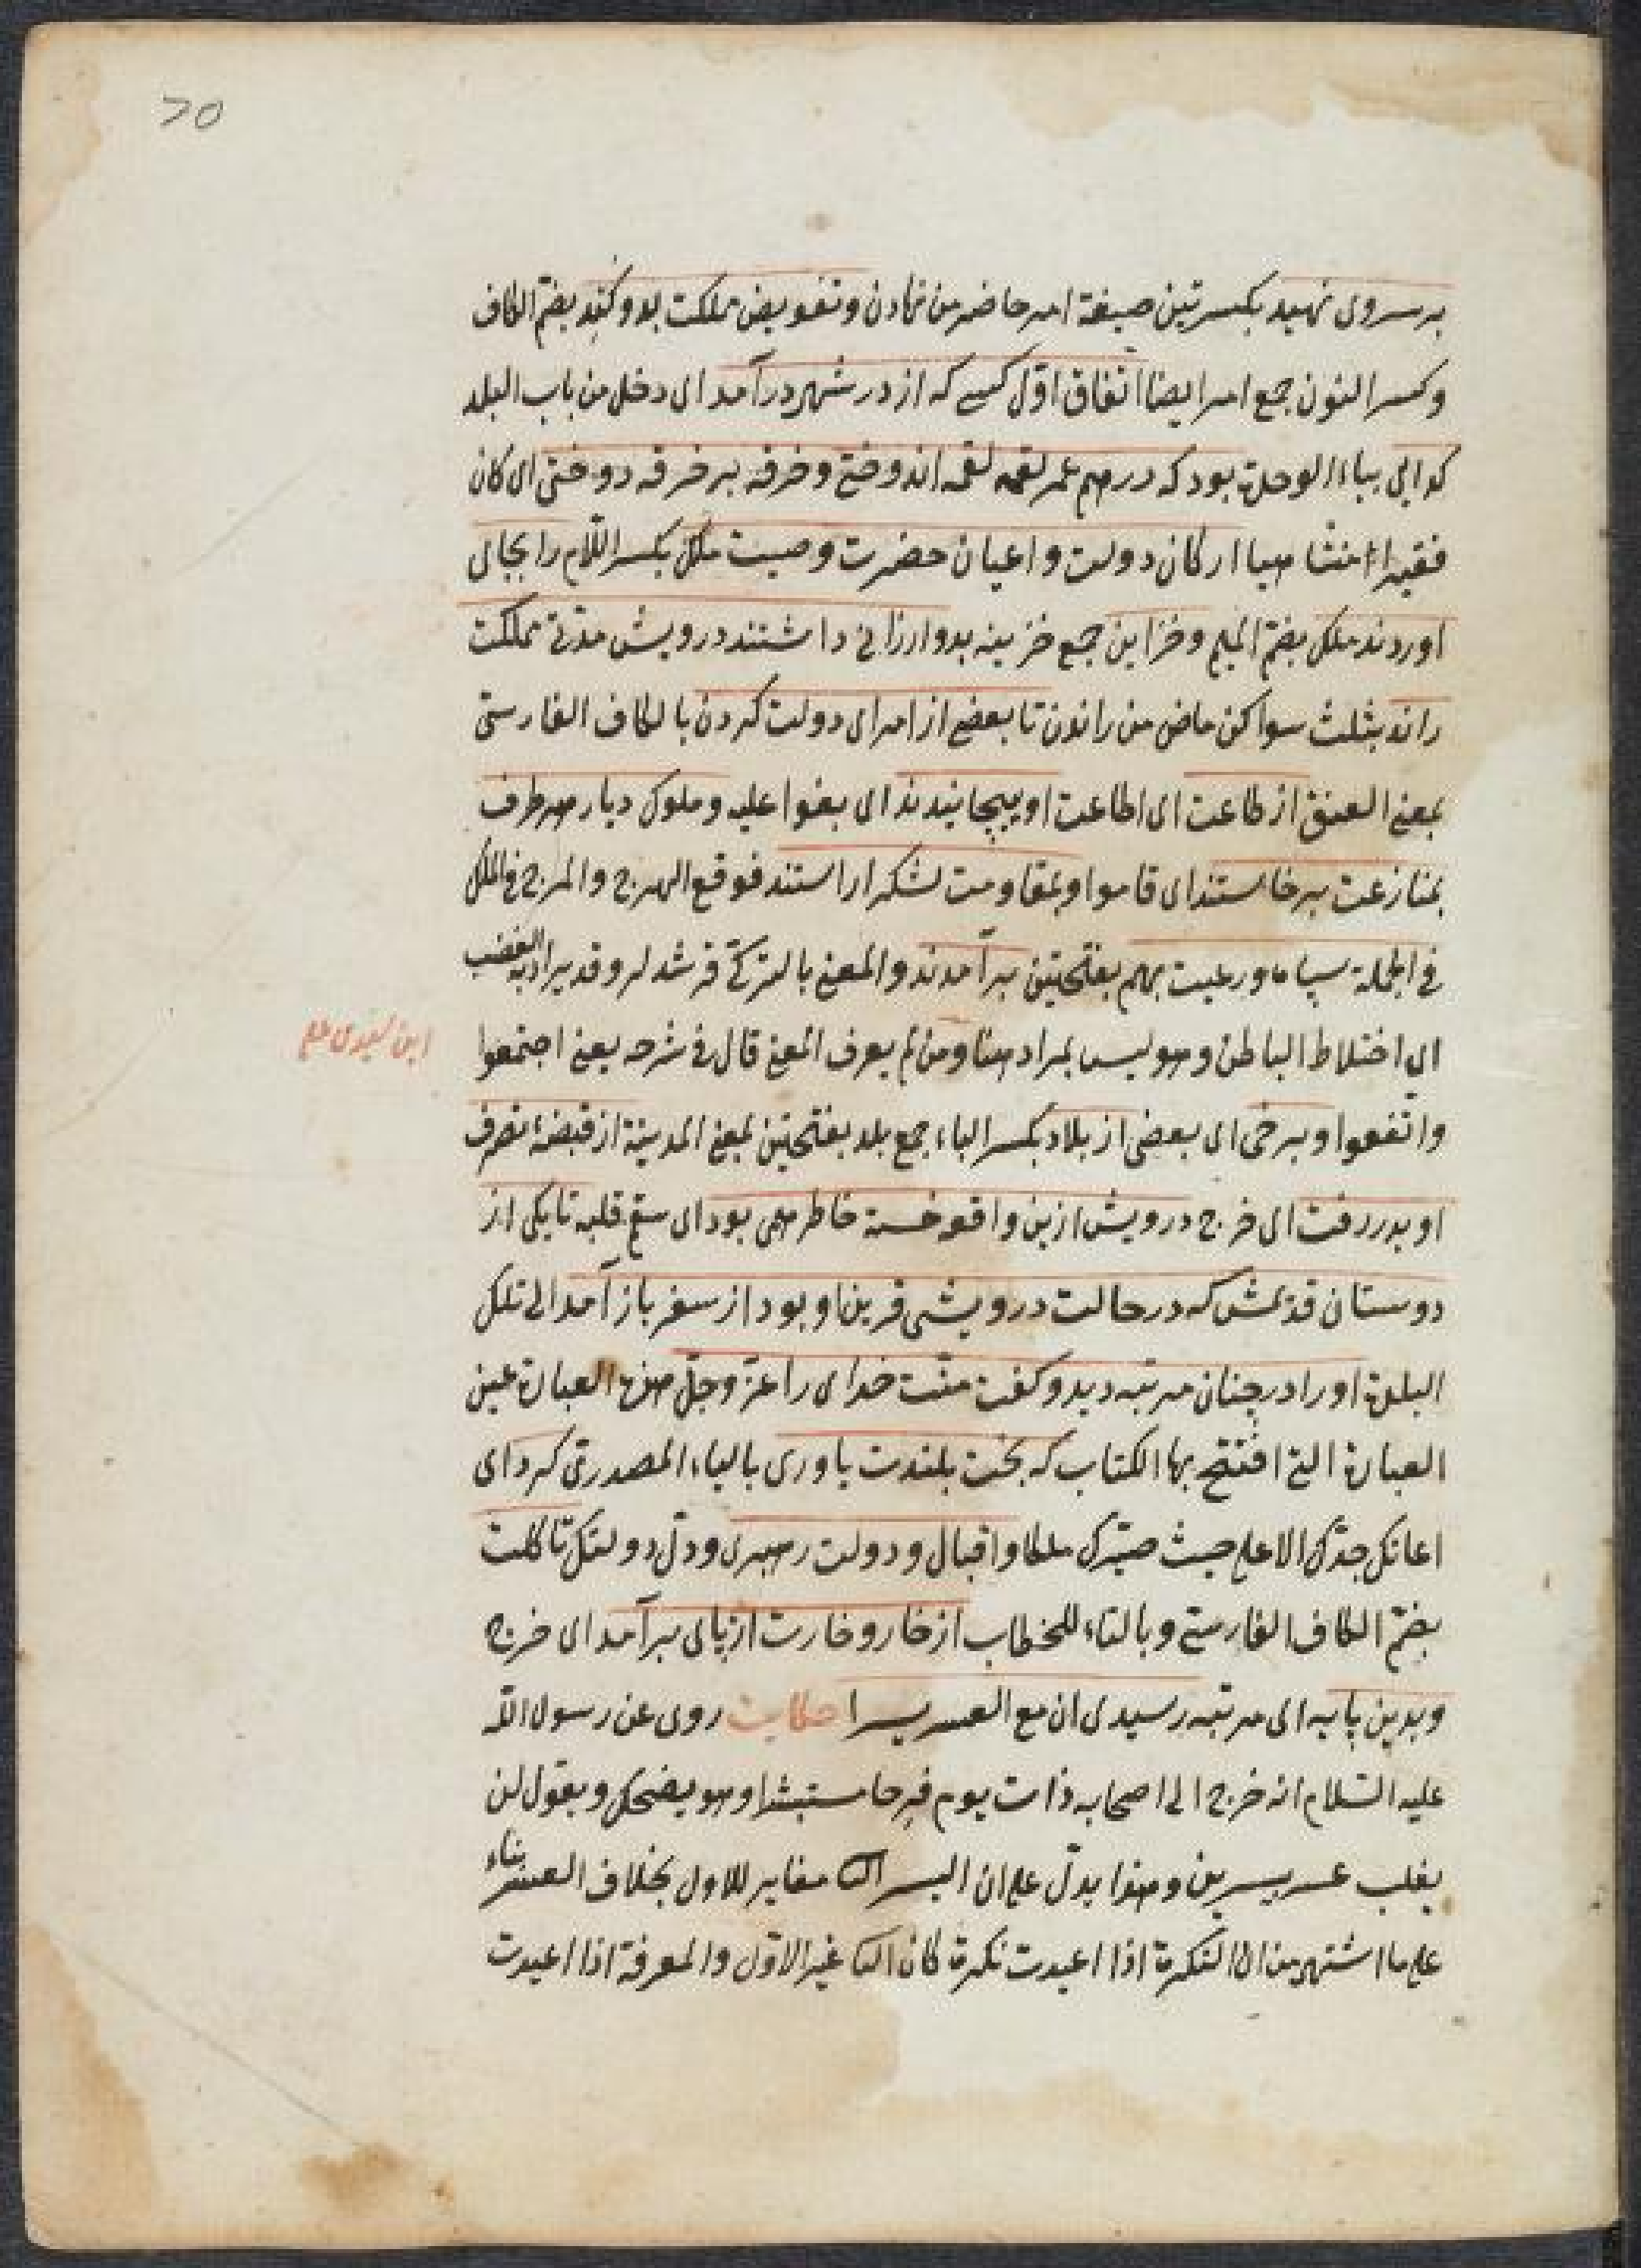 بر سروی نهید بکسرتین صیغة امر حاضر من نهادن و تفویض مملکت بدو کنید بضم الکاف
وکسر النون جمع امر ایضا اتفاق اول کسی که از در شهر درآمد ای دخل من باب البلد
کدایی بیاء الوحدة بود که در همه عمر لقمه لقمه اندوختی و خرقه بر خرقه دوختی ای کان
فقیرا ارکان دولت و اعیان حضرت وصیت ملک بکسر اللام را بجای
اوردند ملک بضم المیم و خزاین جمع خزینه بدو ارزانی داشتند درویش مدتی مملکت
راند بثلث سواکن ماضی من راندن تا بعضی از امرای دولت کردن بالکاف الفارسی
بمعنی العنق از طاعت ای اطاعت او پیچانیدند ای بغوا علیه و ملوک دیار هر طرف
بمنازعت برخاستند ای قاموا و بمقاومت لشکر اراستند فوقع الهرج والمرج فی الملک
فی الجملة سپاه و رعیت بهم بفتحتین برآمدند والمعنی بالترکی قرشدلر وقد یراد به الغضب
ای اختلاط الباطن وهو لیس بمراد هنا ومن لم یعرف المعنی قال فی شرحه یعنی اجتمعوا
ابن سیدی علی
واتفقوا و برخی ای بعضی از بلاد بکسر الباء جمع بلد بفتحتین بمعنی المدینة از قبضهٔ تصرف
او بدر رفت ای خرج درویش ازین واقعه خسته خاطر همی بود ای سقم قلبه تا یکی از
دوستان قدیمش که در حالت درویشی قرین او بود از سفر باز آمد الی تلک
البلدة او را در چنان مرتبه دید و کفت منت خدای را عز وجل هذه العبارة عین
العبارة التی افتتح بها الکتاب که بخت بلندت یاوری بالیاء المصدری کرد ای
اعانک جدک الاعلی حیث صیرک ملکا و اقبال و دولت رهبری ودل دولتک تا کلت
بضم الکاف الفارسی وبالتاء للخطاب از خار و خارت از پای برآمد ای خرج
و بدین پایه ای مرتبه رسیدی ان مع العسر یسرا حکایت روی عن رسول الله
علیه السلام انه خرج الی اصحابه ذات یوم فرحا مستبشرا وهو یضحک ویقول لن
یغلب عسر یسرین وهذا یدل علی ان الیسر الثا مغایر للاول بخلاف العسر بناء
علی ما اشتهر من ان النکرة اذا اعیدت نکرة کان الثا غیر الاول والمعرفة اذا اعیدت